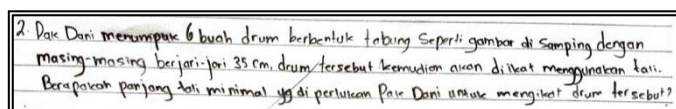 2. Pak Dani menumpuk 6 buah drum berbentuk tabung Seperti gambar di Samping dengan
masing-masing berjari-jari 35 cm, drum tersebut kemudian akan diikat menggunakan tali.
Berapakah panjang tali minimal yg di perlukan Pak Dani untuk mengikat drum tersebut?